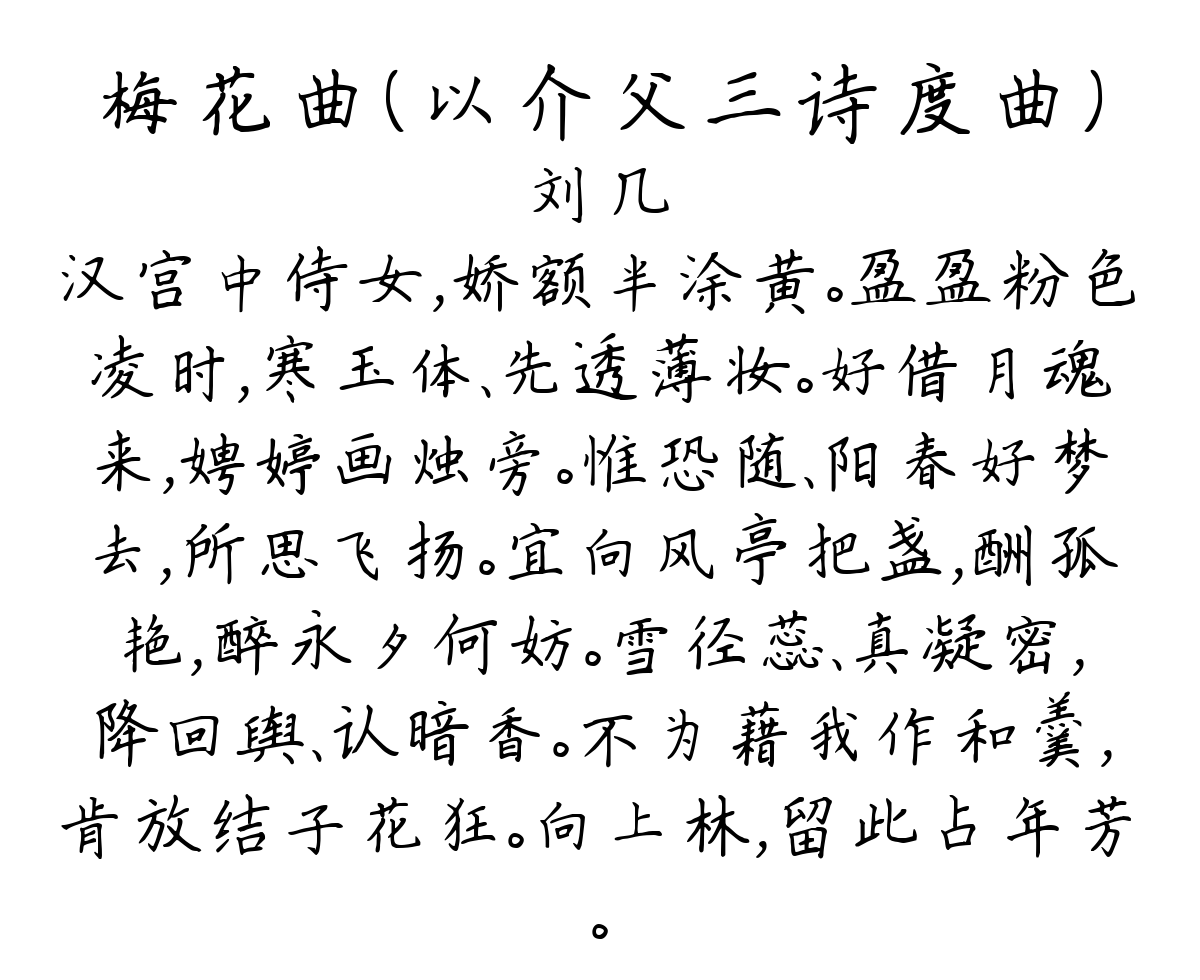 梅花曲(以介父三诗度曲)
刘几
汉宫中侍女,娇额半涂黄。盈盈粉色
凌时,寒玉体、先透薄妆。好借月魂
来,娉婷画烛旁。惟恐随、阳春好梦
去,所思飞扬。宜向风亭把盏,酬孤
艳,醉永夕何妨。雪径蕊、真凝密,
降回舆、认暗香。不为藉我作和羹,
肯放结子花狂。向上林,留此占年芳
。